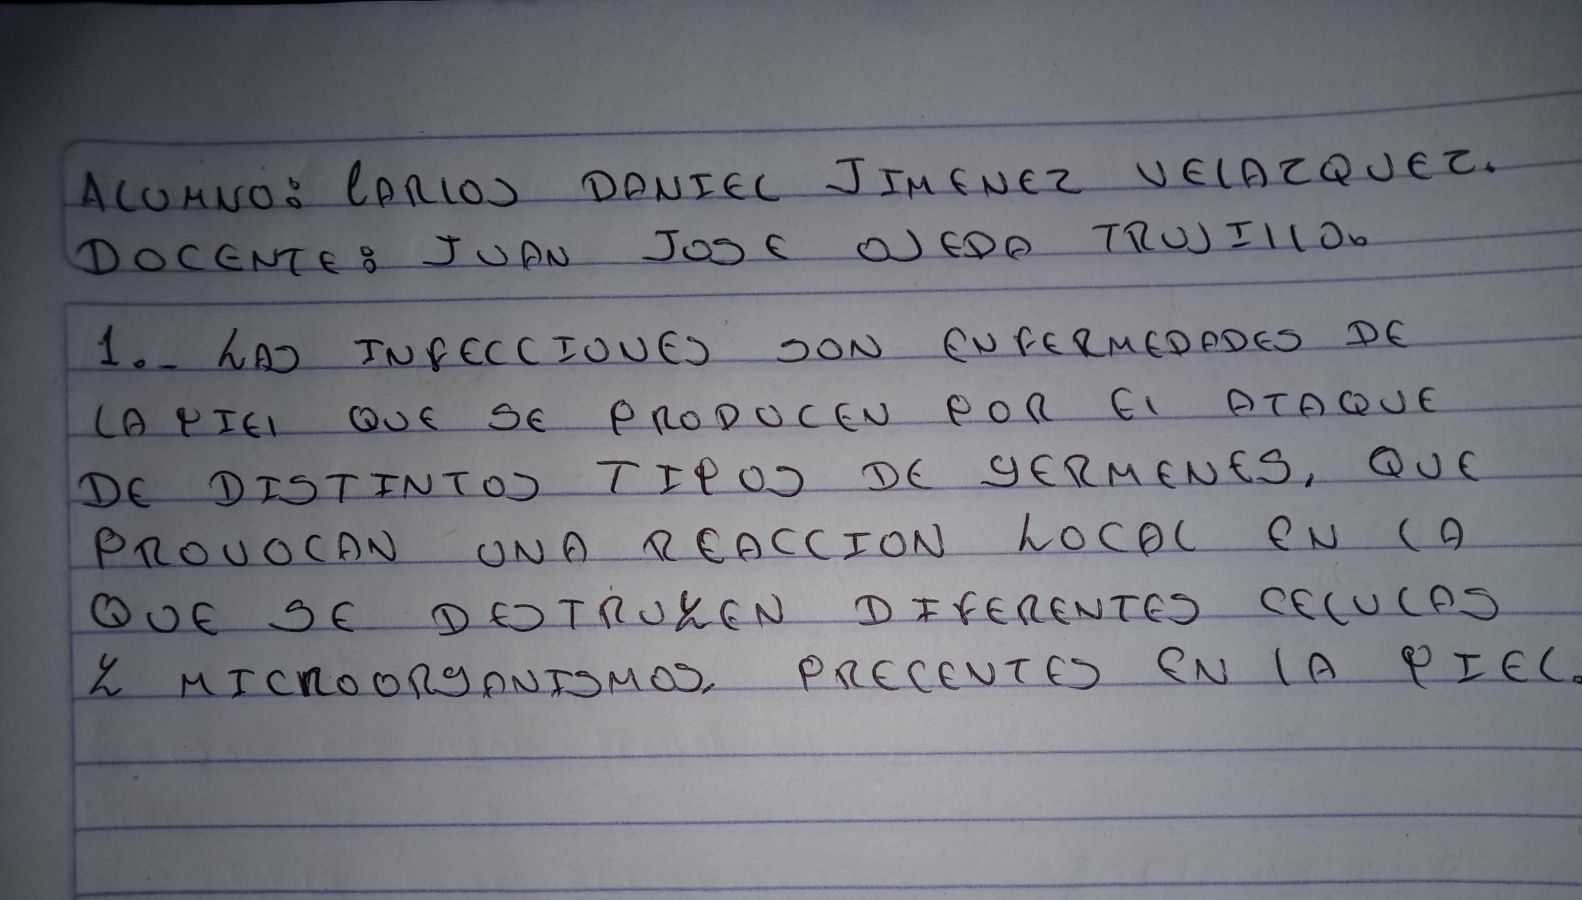 ALUMNO: CARLOS DANIEL JIMENEZ VELAZQUEZ.
DOCENTE: JUAN JOSE OJEDA TRUJILLO.
1.- LAS INFECCIONES SON ENFERMEDADES DE
LA PIEL QUE SE PRODUCEN POR EL ATAQUE
DE DISTINTOS TIPOS DE GERMENES, QUE
PROVOCAN UNA REACCION LOCAL EN LA
QUE SE DESTRUYEN DIFERENTES CELULAS
Y MICROORGANISMOS. PRECENTES EN LA PIEL.